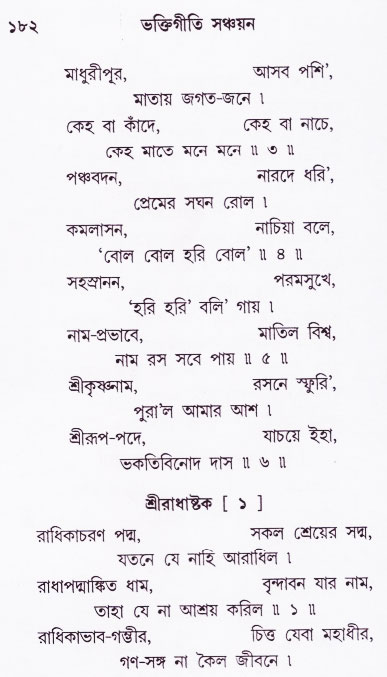 ১৮২ ভক্তিগীতি সঞ্চয়ন
মাধুরীপূর, আসব পশি’,
মাতায় জগত-জনে ।
কেহ বা কাঁদে, কেহ বা নাচে,
কেহ মাতে মনে মনে ॥ ৩ ॥
পঞ্চবদন, নারদে ধরি’,
প্রেমের সঘন রোল ।
কমলাসন, নাচিয়া বলে,
‘বোল বোল হরি বোল’ ॥ ৪ ॥
সহস্রানন, পরমসুখে,
‘হরি হরি’ বলি’ গায় ।
নাম-প্রভাবে, মাতিল বিশ্ব,
নাম রস সবে পায় ॥ ৫ ॥
শ্রীকৃষ্ণনাম, রসনে স্ফুরি’,
পুরা’ল আমার আশ ।
শ্রীরূপ-পদে, যাচয়ে ইহা,
ভকতিবিনোদ দাস ॥ ৬ ॥
শ্রীরাধাষ্টক [ ১ ]
রাধিকাচরণ পদ্ম, সকল শ্রেয়ের সদ্ম,
যতনে যে নাহি আরাধিল ।
রাধাপদ্মাঙ্কিত ধাম, বৃন্দাবন যার নাম,
তাহা যে না আশ্রয় করিল ॥ ১ ॥
রাধিকাভাব-গম্ভীর, চিত্ত যেবা মহাধীর,
গণ-সঙ্গ না কৈল জীবনে ।